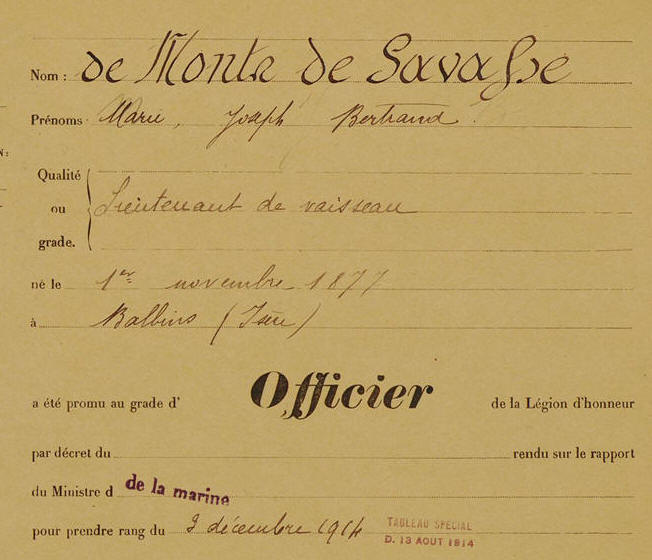 Nom : de Monts de Savasse
Prénoms Marie, Joseph Bertrand
Qualité
ou Lieutenant de vaisseau
grade.
né le 1er novembre 1877
à Balbins (Isère)
a été promu au grade d' Officier de la Légion d'honneur
par décret du rendu sur le rapport
du Ministre d de la marine
pour prendre rang du 3 décembre 1914
TABLEAU SPÉCIAL
D. 13 AOUT 1914